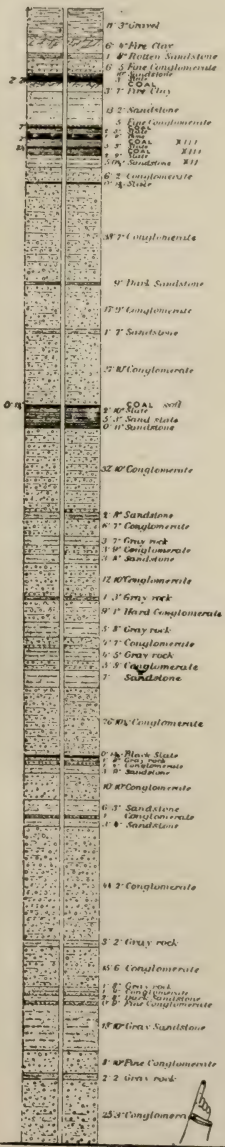 11' 3" Gravel
6' 4" Fire Clay
1' 8" Rotten Sandstone
6' 5 Fine Conglomerate
Sandstone
Slate
2' 2"
COAL
3' 7" Fire Clay
13 2" Sandstone
5 Fine Conglomerate
COAL
Slate
COAL XIII
Slate
COAL XIII
Slate
Sandstone XII
6' 2 Conglomerate
Slate
38' 7" Conglomerate
9" Dark Sandstone
17' 9" Conglomerate
1' 7" Sandstone
37' 10" Conglomerate
COAL
2' 10" Slate
5' 3" Sand slate
0' 11" Sandstone
32' 10" Conglomerate
2' 8" Sandstone
6' 7" Conglomerate
3' 7" Gray rock
3' 9" Conglomerate
3' 8" Sandstone
12' 10" Conglomerate
1' 3" Gray rock
9' 1" Hard Conglomerate
3' 8" Gray rock
4' 7" Conglomerate
4' 5" Gray rock
5' 8" Conglomerate
7' Sandstone
76' 10½" Conglomerate
Black Slate
Gray rock
Conglomerate
Sandstone
10' 10" Conglomerate
6' 3" Sandstone
1' Conglomerate
Sandstone
44' 2" Conglomerate
3' 2" Gray rock
15' 6 Conglomerate
Gray rock
Conglomerate
Dark Sandstone
Fine Conglomerate
13' 10" Gray Sandstone
8' 10" Fine Conglomerate
2' 2 Gray rock
25' 3" Conglomerate